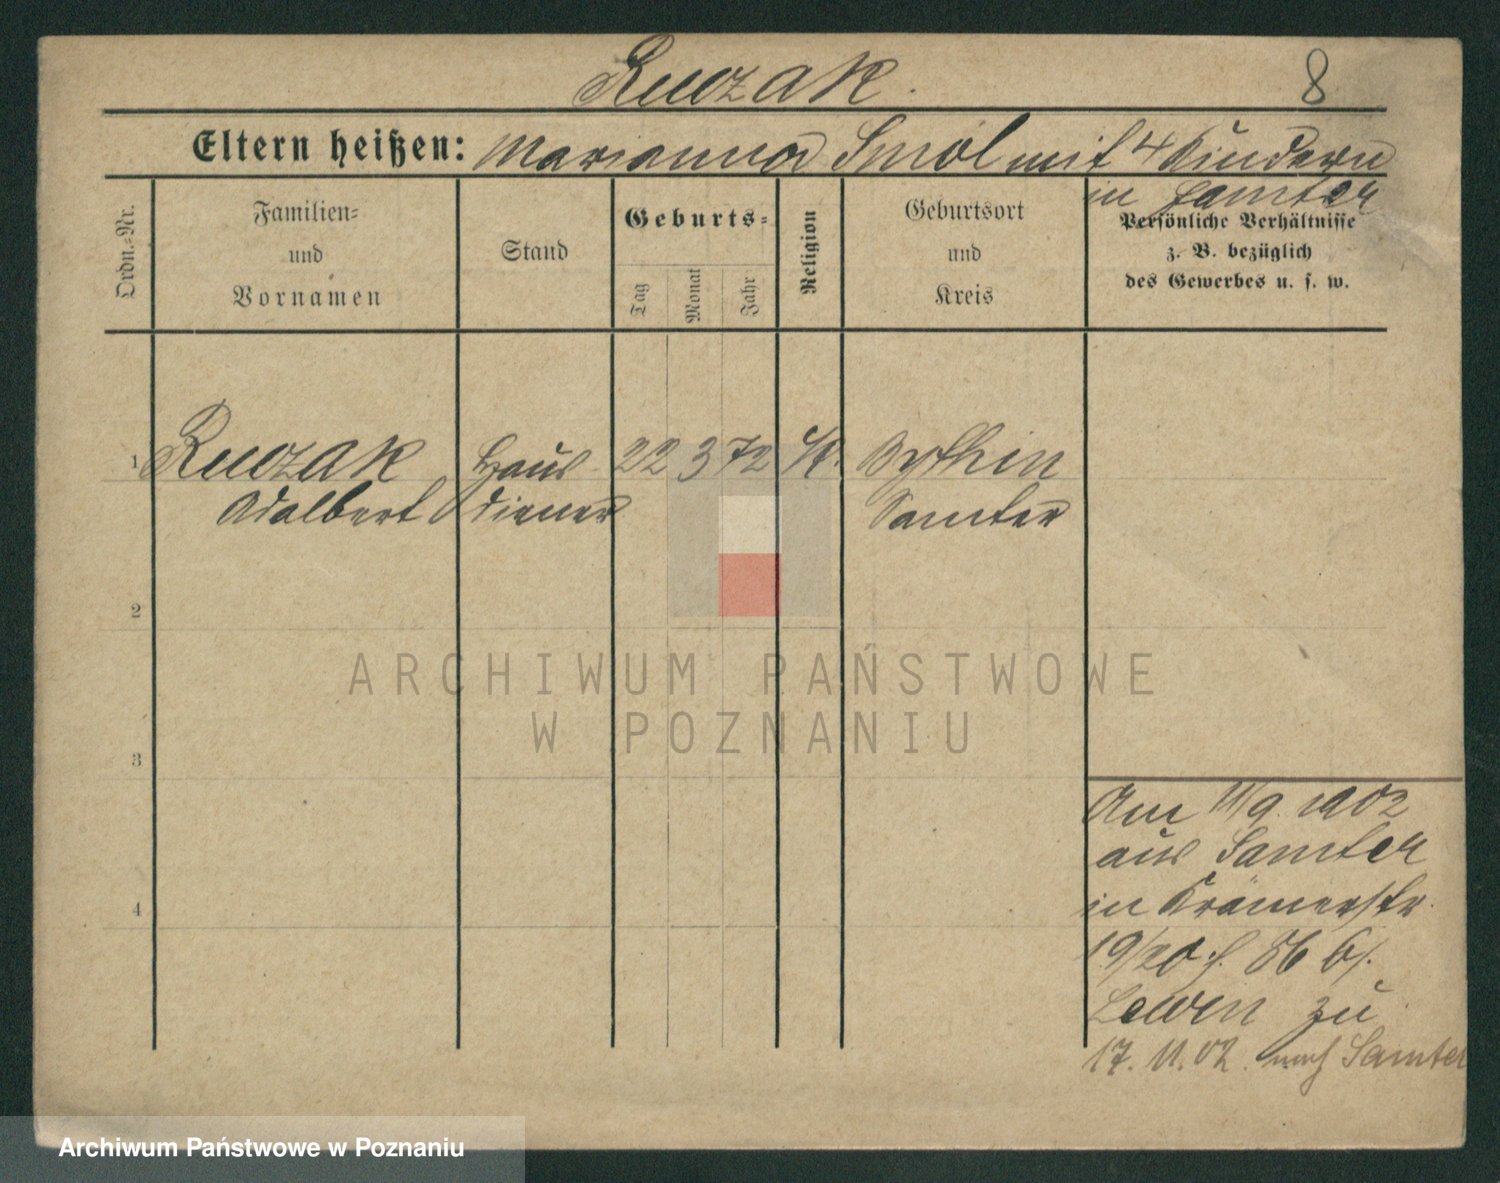 Ruczak. 8
Eltern heißen: Marianna Smol mit 4 Kindern
in Samter
Ordn.-Nr.
Familien-
und
Vornamen
Stand
Geburts-
Tag
Monat
Jahr
Religion
Geburtsort
und
Kreis
Persönliche Verhältnisse
z. B. bezüglich
des Gewerbes u. s. w.
1 Ruczak Haus 22 3 72 K. Bythin
Adalbert diener Samter
2
ARCHIWUM PAŃSTWOWE
W POZNANIU
3
Am 11/9. 1902
aus Samter
4 in Krämerstr.
19/20 b/.
Lewin zu
17. 11. 02. nach Samter
Archiwum Państwowe w Poznaniu